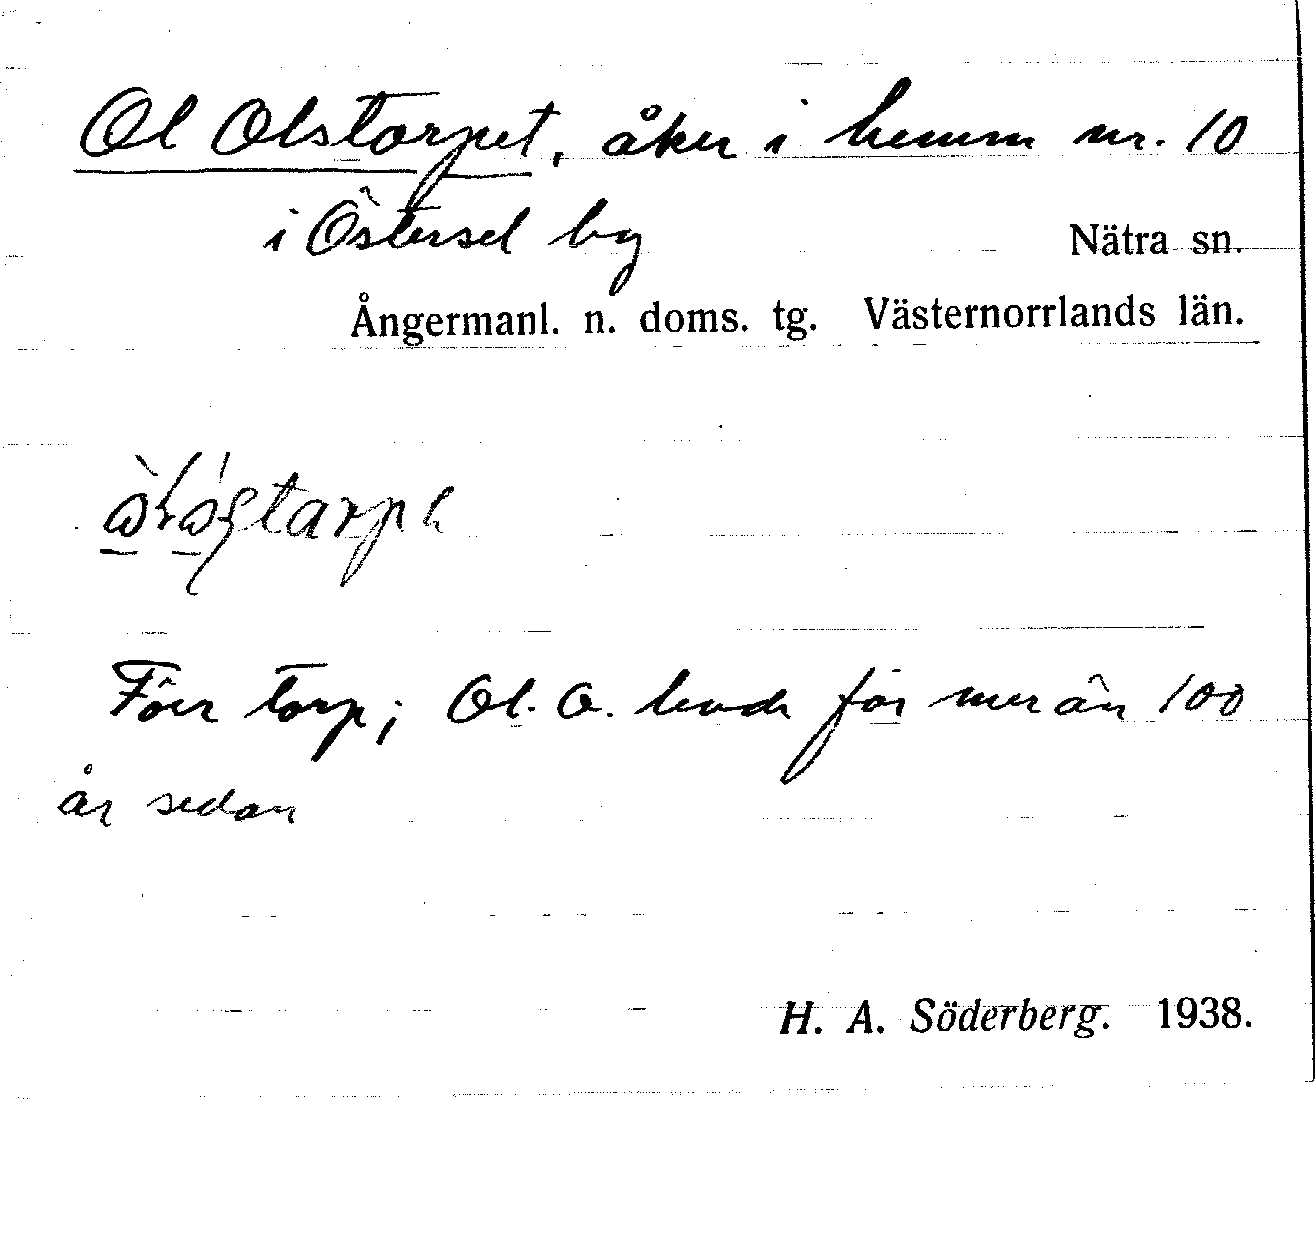 Ol Olstorpet, åker i hemm nr. 10
i Östersel by
Nätra sn.
Ångermanl. n. doms. tg. Västernorrlands län.
Förr torp; Ol. O. levde för mer än 100
år sedan
H. A. Söderberg. 1938.